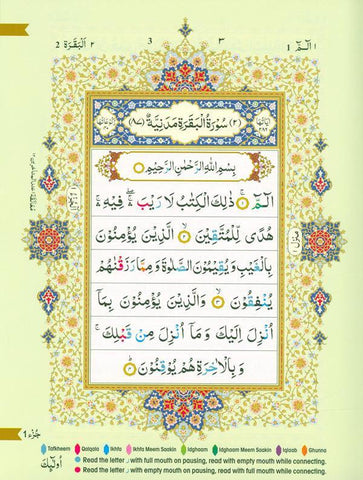 2 اَلْبَقَرَة ٢
3
٣
1 الٓمّٓ ١
(٢) سُوْرَةُ الْبَقَرَةِ مَدَنِيَّةٌ (٨٧)
بِسْمِ اللّٰهِ الرَّحْمٰنِ الرَّحِيْمِ
الٓمّٓ ۚ ١ ذٰلِكَ الْكِتٰبُ لَا رَيْبَ ۛۖ فِيْهِ ۛۚ
هُدًى لِّلْمُتَّقِيْنَ ۙ ٢ الَّذِيْنَ يُؤْمِنُوْنَ
بِالْغَيْبِ وَيُقِيْمُوْنَ الصَّلٰوةَ وَمِمَّا رَزَقْنٰهُمْ
يُنْفِقُوْنَ ۙ ٣ وَالَّذِيْنَ يُؤْمِنُوْنَ بِمَآ
اُنْزِلَ اِلَيْكَ وَمَآ اُنْزِلَ مِنْ قَبْلِكَ ۚ
وَبِالْاٰخِرَةِ هُمْ يُوْقِنُوْنَ ؕ ٤
جُزْء 1
Tafkheem Qalqala Ikhfa Ikhfa Meem Saakin Idghaam Idghaam Meem Saakin Iqlaab Ghunna
اُولٰٓئِكَ
Read the letter ر with full mouth on pausing, read with empty mouth while connecting.
Read the letter ر with empty mouth on pausing, read with full mouth while connecting.